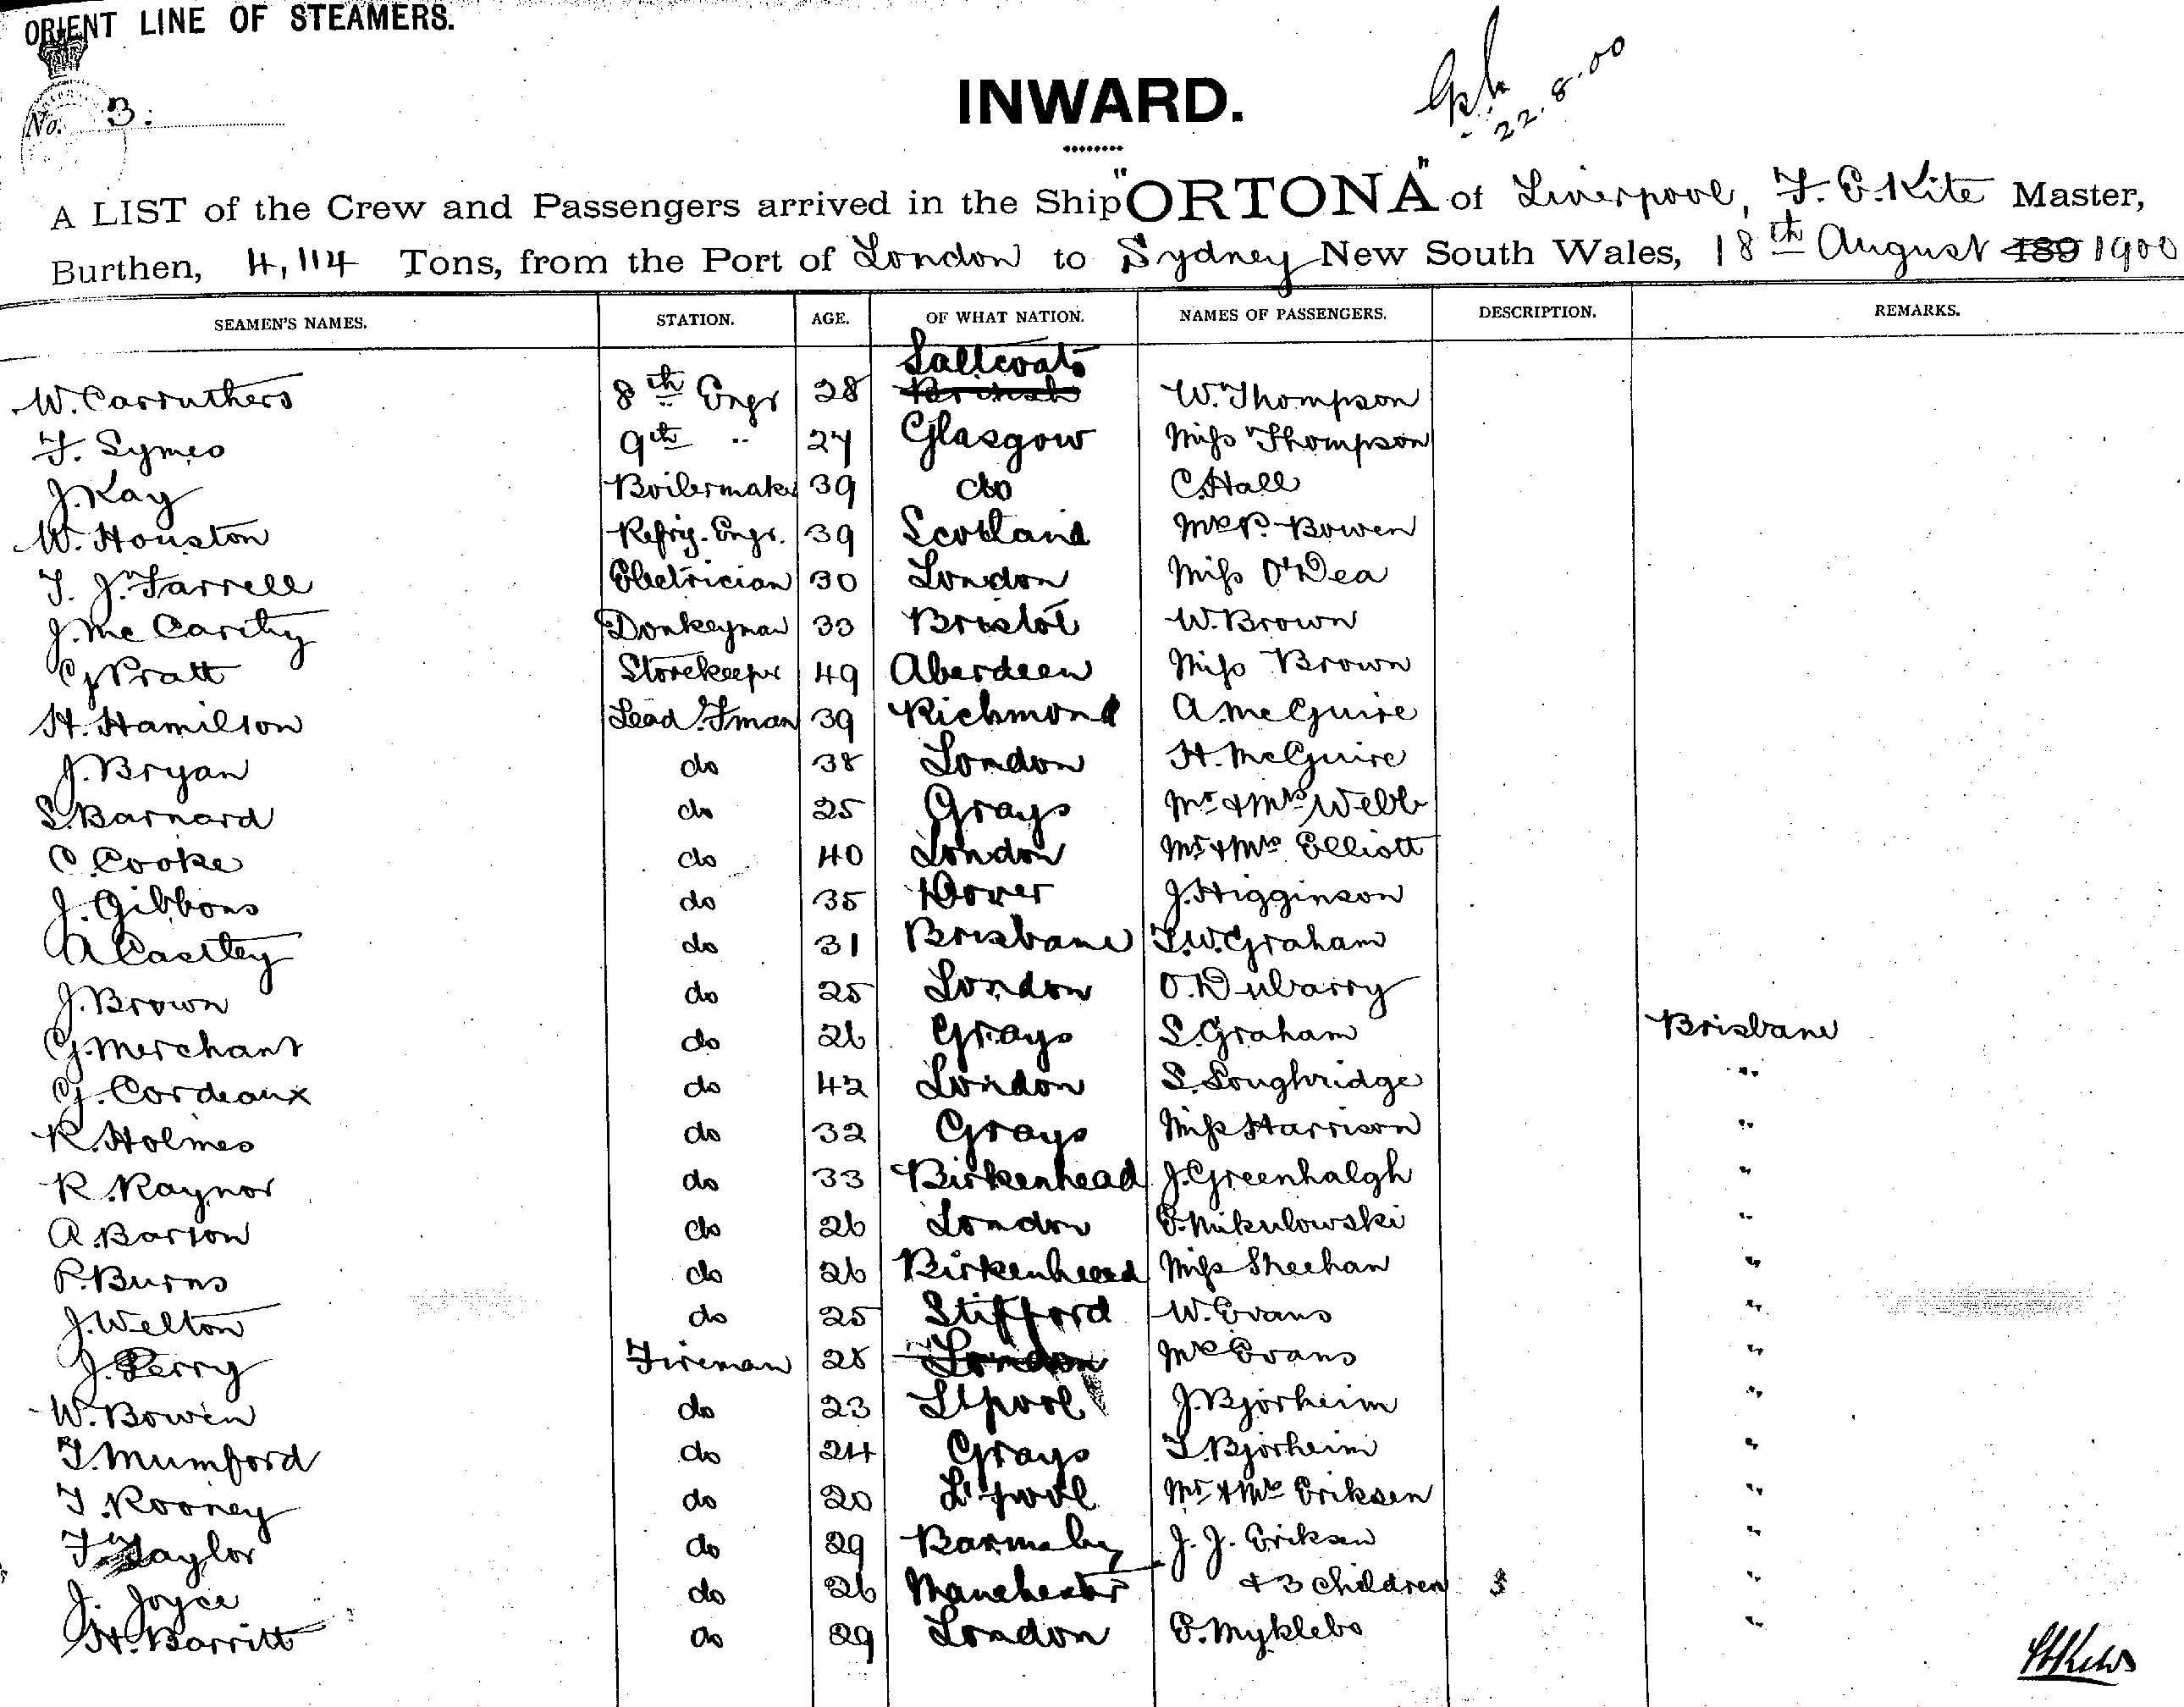 ORIENT LINE OF STEAMERS.
No. 3.
INWARD.
22.8.00
A LIST of the Crew and Passengers arrived in the Ship "ORTONA" of Liverpool, F. E. Kite Master,
Burthen, 4,114 Tons, from the Port of London to Sydney New South Wales, 18th August 189 1900
SEAMEN'S NAMES. STATION. AGE. OF WHAT NATION. NAMES OF PASSENGERS. DESCRIPTION. REMARKS.
Saltcoats
W. Carruthers 8th Engr 28 British W. Thompson
F. Symes 9th " 27 Glasgow Miss Thompson
J. Kay Boilermaker 39 do C. Hall
W. Houston Refrig. Engr. 39 Scotland Mrs P. Bowen
T. J. Farrell Electrician 30 London Miss O'Dea
J. McCarthy Donkeyman 33 Bristol W. Brown
G. Pratt Storekeeper 49 Aberdeen Miss Brown
H. Hamilton Lead. Fman 39 Richmond A. McGuire
J. Bryan do 38 London H. McGuire
S. Barnard do 25 Grays Mr & Mrs Webb
C. Cooke do 40 London Mr & Mrs Elliott
J. Gibbons do 35 Dover J. Higginson
A Castley do 31 Brisbane T. W. Graham
J. Brown do 25 London O. Dubarry
G. Merchant do 26 Grays S. Graham Brisbane
G. Cordeaux do 42 London S. Loughridge "
R. Holmes do 32 Grays Miss Harrison "
R. Raynor do 33 Birkenhead J. Greenhalgh "
A. Barton do 26 London E. Mikulowski "
P. Burns do 26 Birkenhead Miss Sheehan "
J. Welton do 25 Stifford W. Evans "
J. Perry Fireman 28 London Mrs Evans "
W. Bowen do 23 L'pool J. Bjorheim "
T. Mumford do 24 Grays T. Bjorheim "
T. Rooney do 20 L'pool Mr & Mrs Eriksen "
F. Taylor do 29 J. J. Eriksen "
J. Joyce do 26 Manchester & 3 children 3 "
H. Barritt do 29 London E. Myklebo "